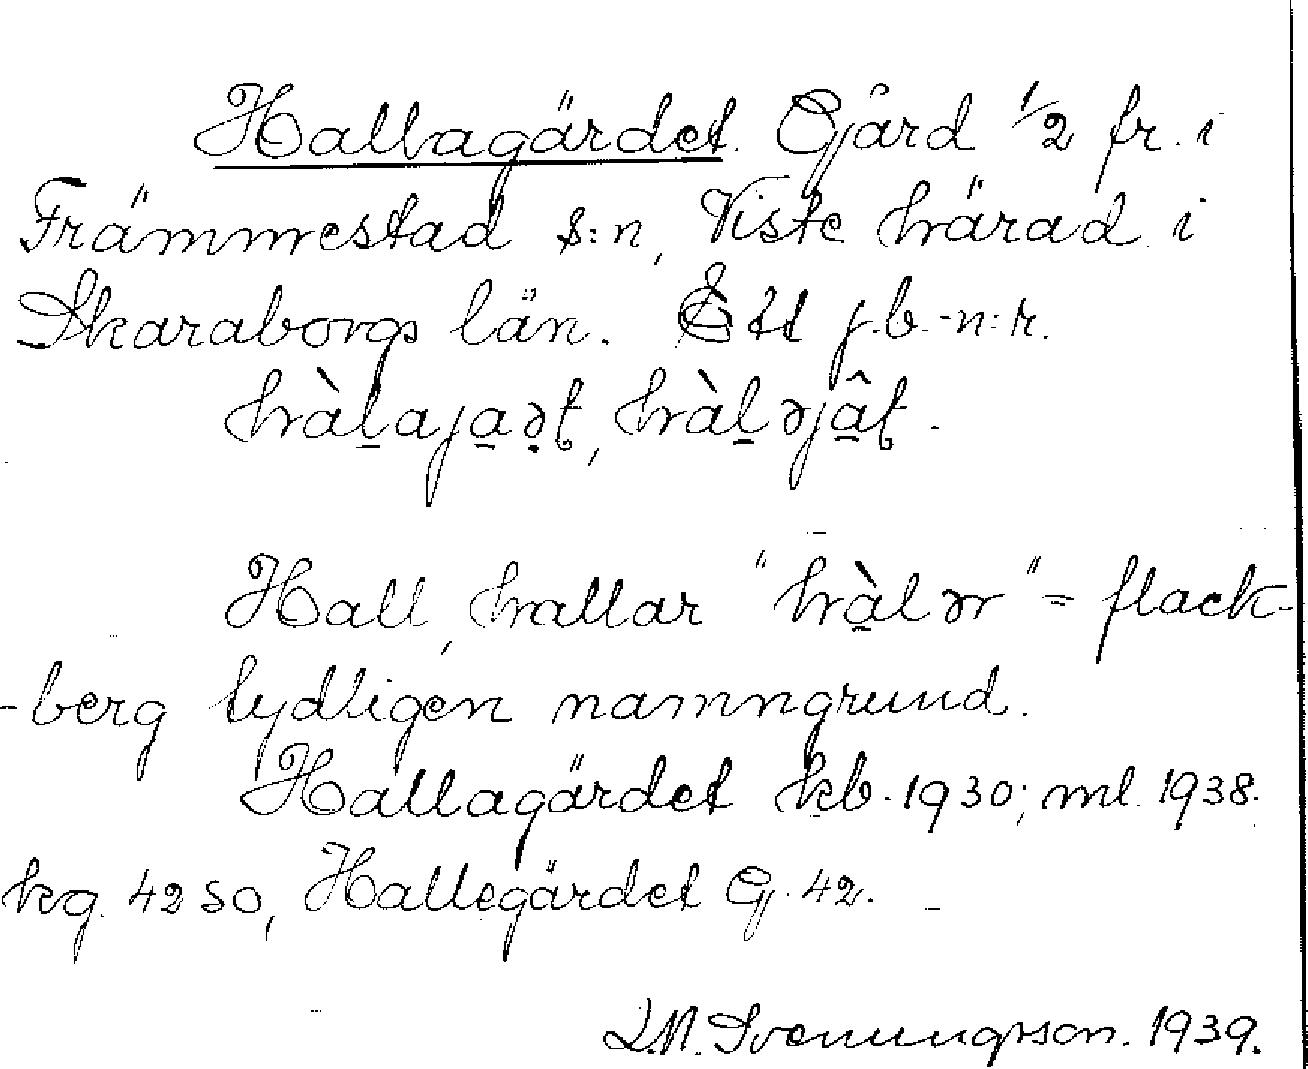 Hallagärdet. Gård 1/2 fr. i
Främmestad s:n, Viste härad i
Skaraborgs län. Ett j.b.-n:r.
hàḻaja̱ǝ̣t, hàḻǝjâ̱t.
Hall, hallar "hà̱lǝr" = flack-
-berg tydligen namngrund.
Hallagärdet kb. 1930; ml. 1938.
kg. 42 SO, Hallegärdet G. 42.
Svenungsson. 1939.